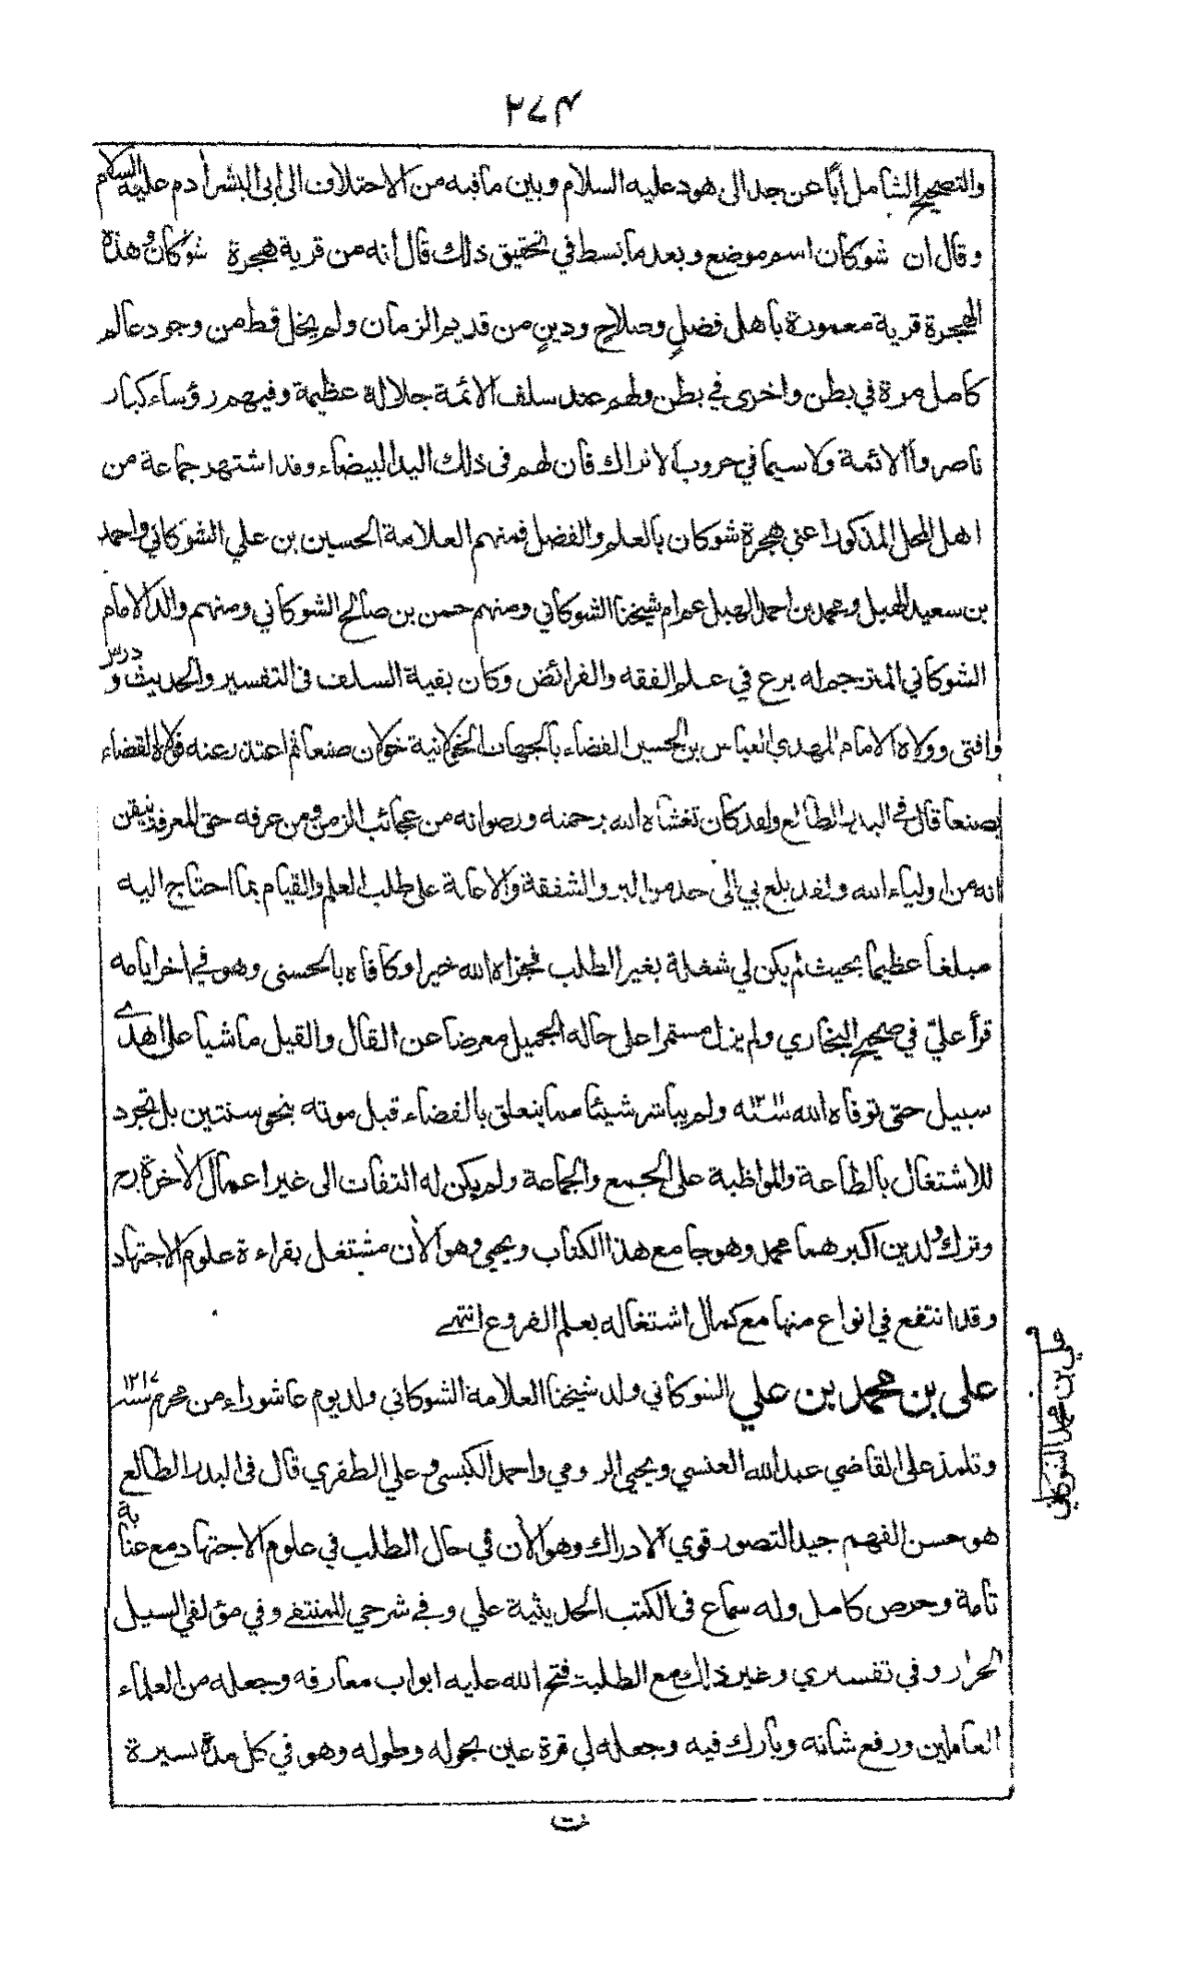 ٢٧٣
والتصحيح الشامل أبًا عن جد الى هود عليه السلام وبين ما فيه من الاختلاف الى ابى البشر أدم عليه السلام
وقال ان شوكان اسم موضع وبعد ما بسط في تحقيق ذلك قال انه من قرية هجرة شوكان وهذة
الهجرة قرية معمورة بأهل فضلٍ وصلاحٍ ودينٍ من قديم الزمان ولم يخل قط من وجود عالم
كامل مرة في بطن واخرى في بطن ولهم عند سلف الائمة جلالة عظيمة وفيهم رؤساء كبار
ناصروا الائمة ولا سيما في حروب الاتراك فان لهم فى ذلك اليد البيضاء وقد اشتهر جماعة من
اهل المحل المذكور اعني هجرة شوكان بالعلم والفضل فمنهم العلامة الحسين بن علي الشوكاني واحمد
بن سعيد الهبل ومحمد بن احمد الهبل عم ام شيخنا الشوكاني ومنهم حسن بن صالح الشوكاني ومنهم والد الامام
الشوكاني المترجم له برع في علم الفقه والفرائض وكان بقية السلف فى التفسير والحديث و درس
وافتى وولاه الامام المهدي العباس بن الحسين القضاء بالجهات الخولانية خولان صنعا ثم اعتذر عنه فولاه القضاء
بصنعا قال في البدر الطالع ولقد كان تغشاه الله برحمته ورضوانه من عجائب الزمن ومن عرفه حق المعرفة تيقن
انه من اولياء الله ولقد بلغ بي الى حد من البر والشفقة والاعانة على طلب العلم والقيام بما احتاج اليه
مبلغاً عظيماً بحيث لم يكن لي شغلة بغير الطلب فجزاه الله خيرا وكافاه بالحسنى وهو في اخر ايامه
قرأ عليّ في صحيح البخاري ولم يزل مستمرا على حاله الجميل معرضا عن القال والقيل ماشيا على اهدى
سبيل حتى توفاه الله ١٢١١سنه ولم يباشر شيئا مما يتعلق بالقضاء قبل موته بنحو سنتين بل تجرد
للاشتغال بالطاعة والمواظبة على الجمع والجماعة ولم يكن له التفات الى غير اعمال الأخرة رح
وترك ولدين اكبرهما محمد وهو جامع هذا الكتاب ويحيى وهو الأن مشتغل بقراءة علوم الاجتهاد
وقد انتفع في انواع منها مع كمال اشتغاله بعلم الفروع انتهى
على بن محمد بن علي الشوكاني ولد شيخنا العلامة الشوكاني ولد يوم عاشوراء من محرم ١٢١٧سنه
وتلمذ على القاضي عبد الله العنسي ويحيى الرومي واحمد الكبسى وعلي الظفري قال فى البدر الطالع
هو حسن الفهم جيد التصور قوي الادراك وهو الأن في حال الطلب في علوم الاجتهاد مع عناية
تامة وحرص كامل وله سماع فى الكتب الحديثية علي وفي شرحي للمنتقى وفي مؤلفي السيل
الجرار وفي تفسيري وغير ذلك مع الطلبة فتح الله عليه ابواب معارفه وجعله من العلماء
العاملين ورفع شانه وبارك فيه وجعله لي قرة عين بحوله وطوله وهو في كل مدة يسيرة
ت
علي بن محمد الشوكاني